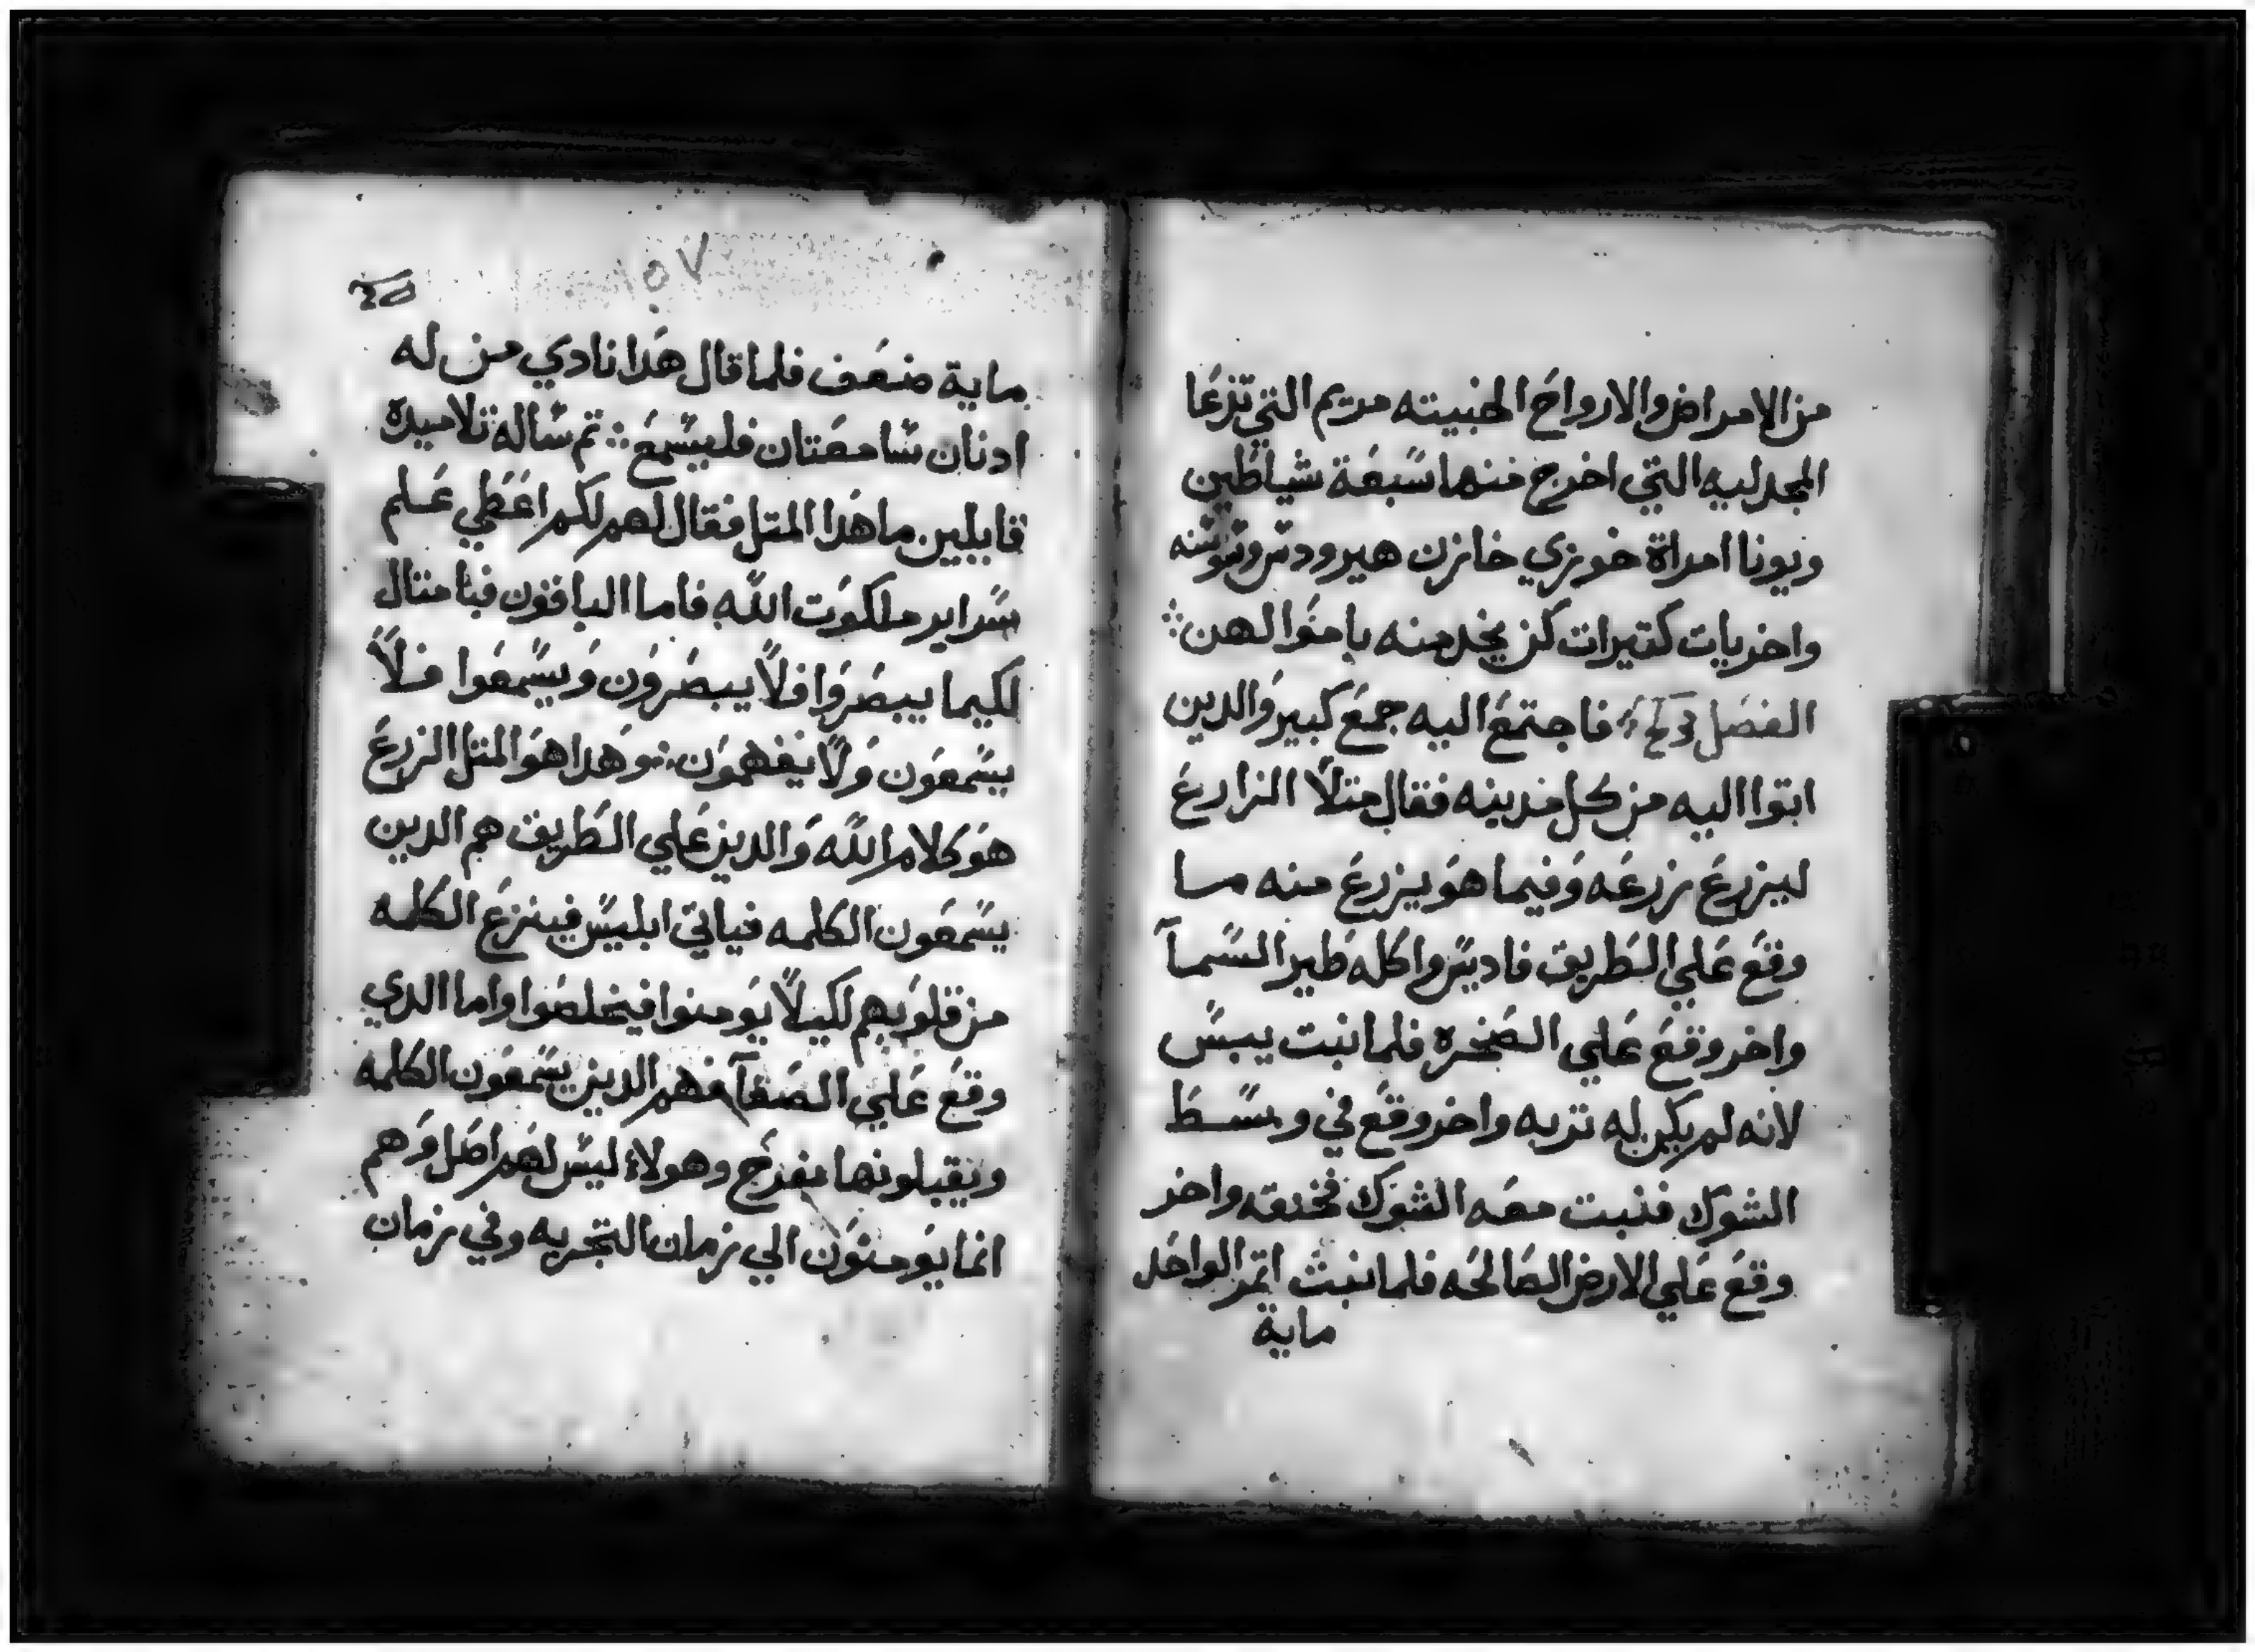 من الامراض والارواح الخبيته مريم التي تدعا
المجدليه التي اخرج منها سبعة شياطين
ويونا امراة خوزي خازن هيرودس وسوسنه
واخريات كتيرات كن يخدمنه باموالهن
الفصل فاجتمع اليه جمع كبير والدين
اتوا اليه من كل مدينه فقال متلا الزارع
ليزرع زرعه وفيما هو يزرع منه ما
وقع علي الطريق فاديس واكله طير السمآ
واخر وقع علي الصخره فلما نبت يبس
لانه لم يكن له تربه واخر وقع في وسط
الشوك فنبت معه الشوك فخنقه واخر
وقع علي الارض الصالحه فلما نبت اتمر الواحد
ماية
١٥٧
ماية ضعف فلما قال هدا نادي من له
ادنان سامعتان فليسمع تم ساله تلاميده
قايلين ما هدا المتل فقال لهم لكم اعطي علم
سراير ملكوت الله فاما الباقون فبامتال
لكيما يبصروا فلا يبصرون ويسمعوا فلا
يسمعون ولا يفهمون وهدا هو المتل الزرع
هو كلام الله والدين علي الطريق هم الدين
يسمعون الكلمه فياتي ابليس فينزع الكلمه
من قلوبهم لكيلا يومنوا فيخلصوا واما الدي
وقع علي الصفآ فهم الدين يسمعون الكلمه
ويقبلونها بفرح وهولاء ليس لهم اصل وهم
انما يومنون الي زمان التجربه وفي زمان